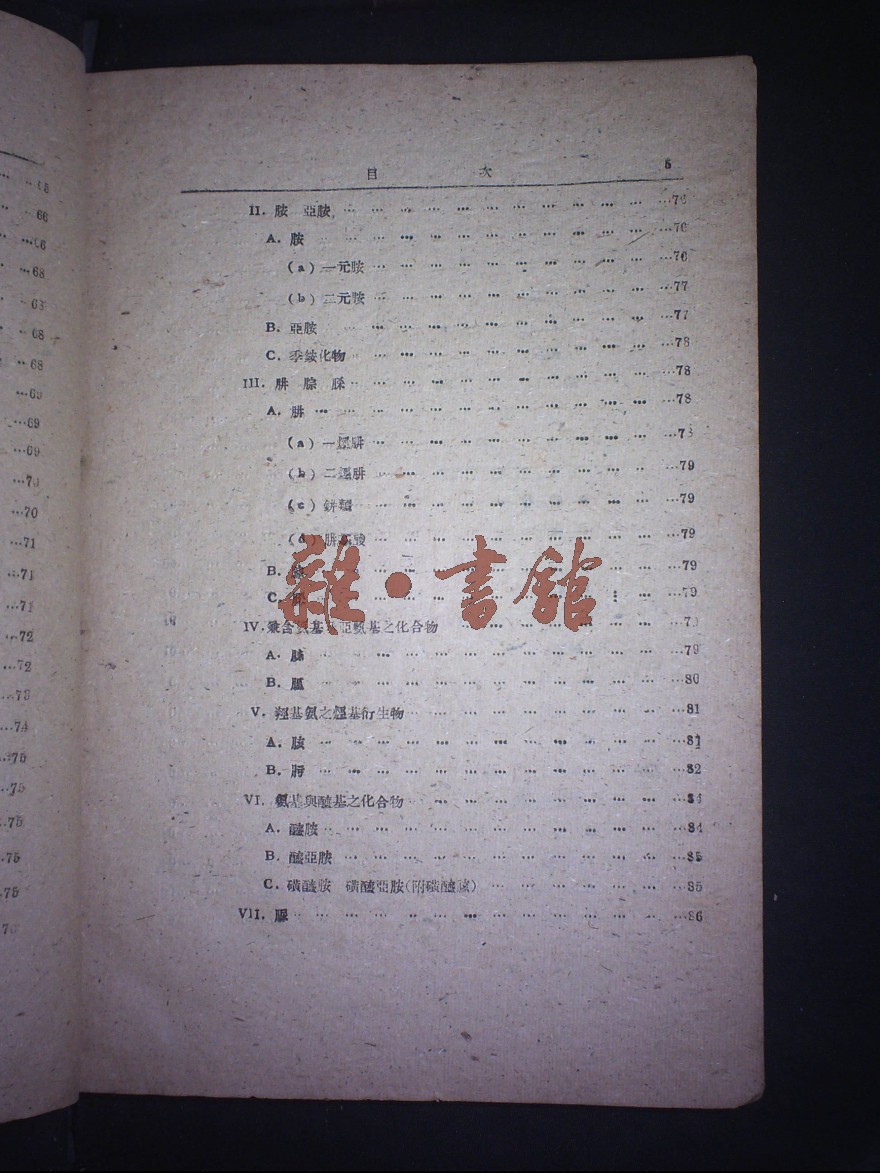 65
66
66
68
63
68
68
69
69
69
70
71
71
71
72
72
73
74
75
75
75
75
75
目 次 5
II. 胺 亞胺 … 76
A. 胺 … 76
(a) 一元胺 … 76
(b) 二元胺 … 77
B. 亞胺 … 77
C. 季銨化物 … 78
III. 肼 腙 … 78
A. 肼 … 78
(a) 一烴肼 … 78
(b) 二烴肼 … 79
(c) 79
(d) 79
B. 79
C. 79
IV. 兼含氨基 亞氨基之化合物 … 79
A. 脒 … 79
B. 80
V. 羥基氨之烴基衍生物 … 81
A. 胲 … 81
B. 肟 … 82
VI. 氨基與醯基之化合物 … 84
A. 醯胺 … 84
B. 醯亞胺 … 85
C. 磺醯胺 磺醯亞胺(附磺醯) … 85
VII. 脲 … 86
雜·書館